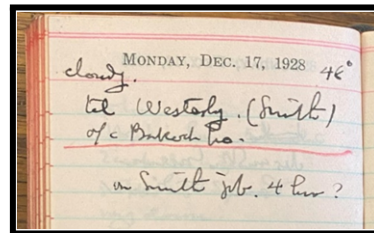 MONDAY, DEC. 17, 1928
cloudy. 48°
tel Westerly. (Smith)
o/c
on Smith job. 4 hrs ?